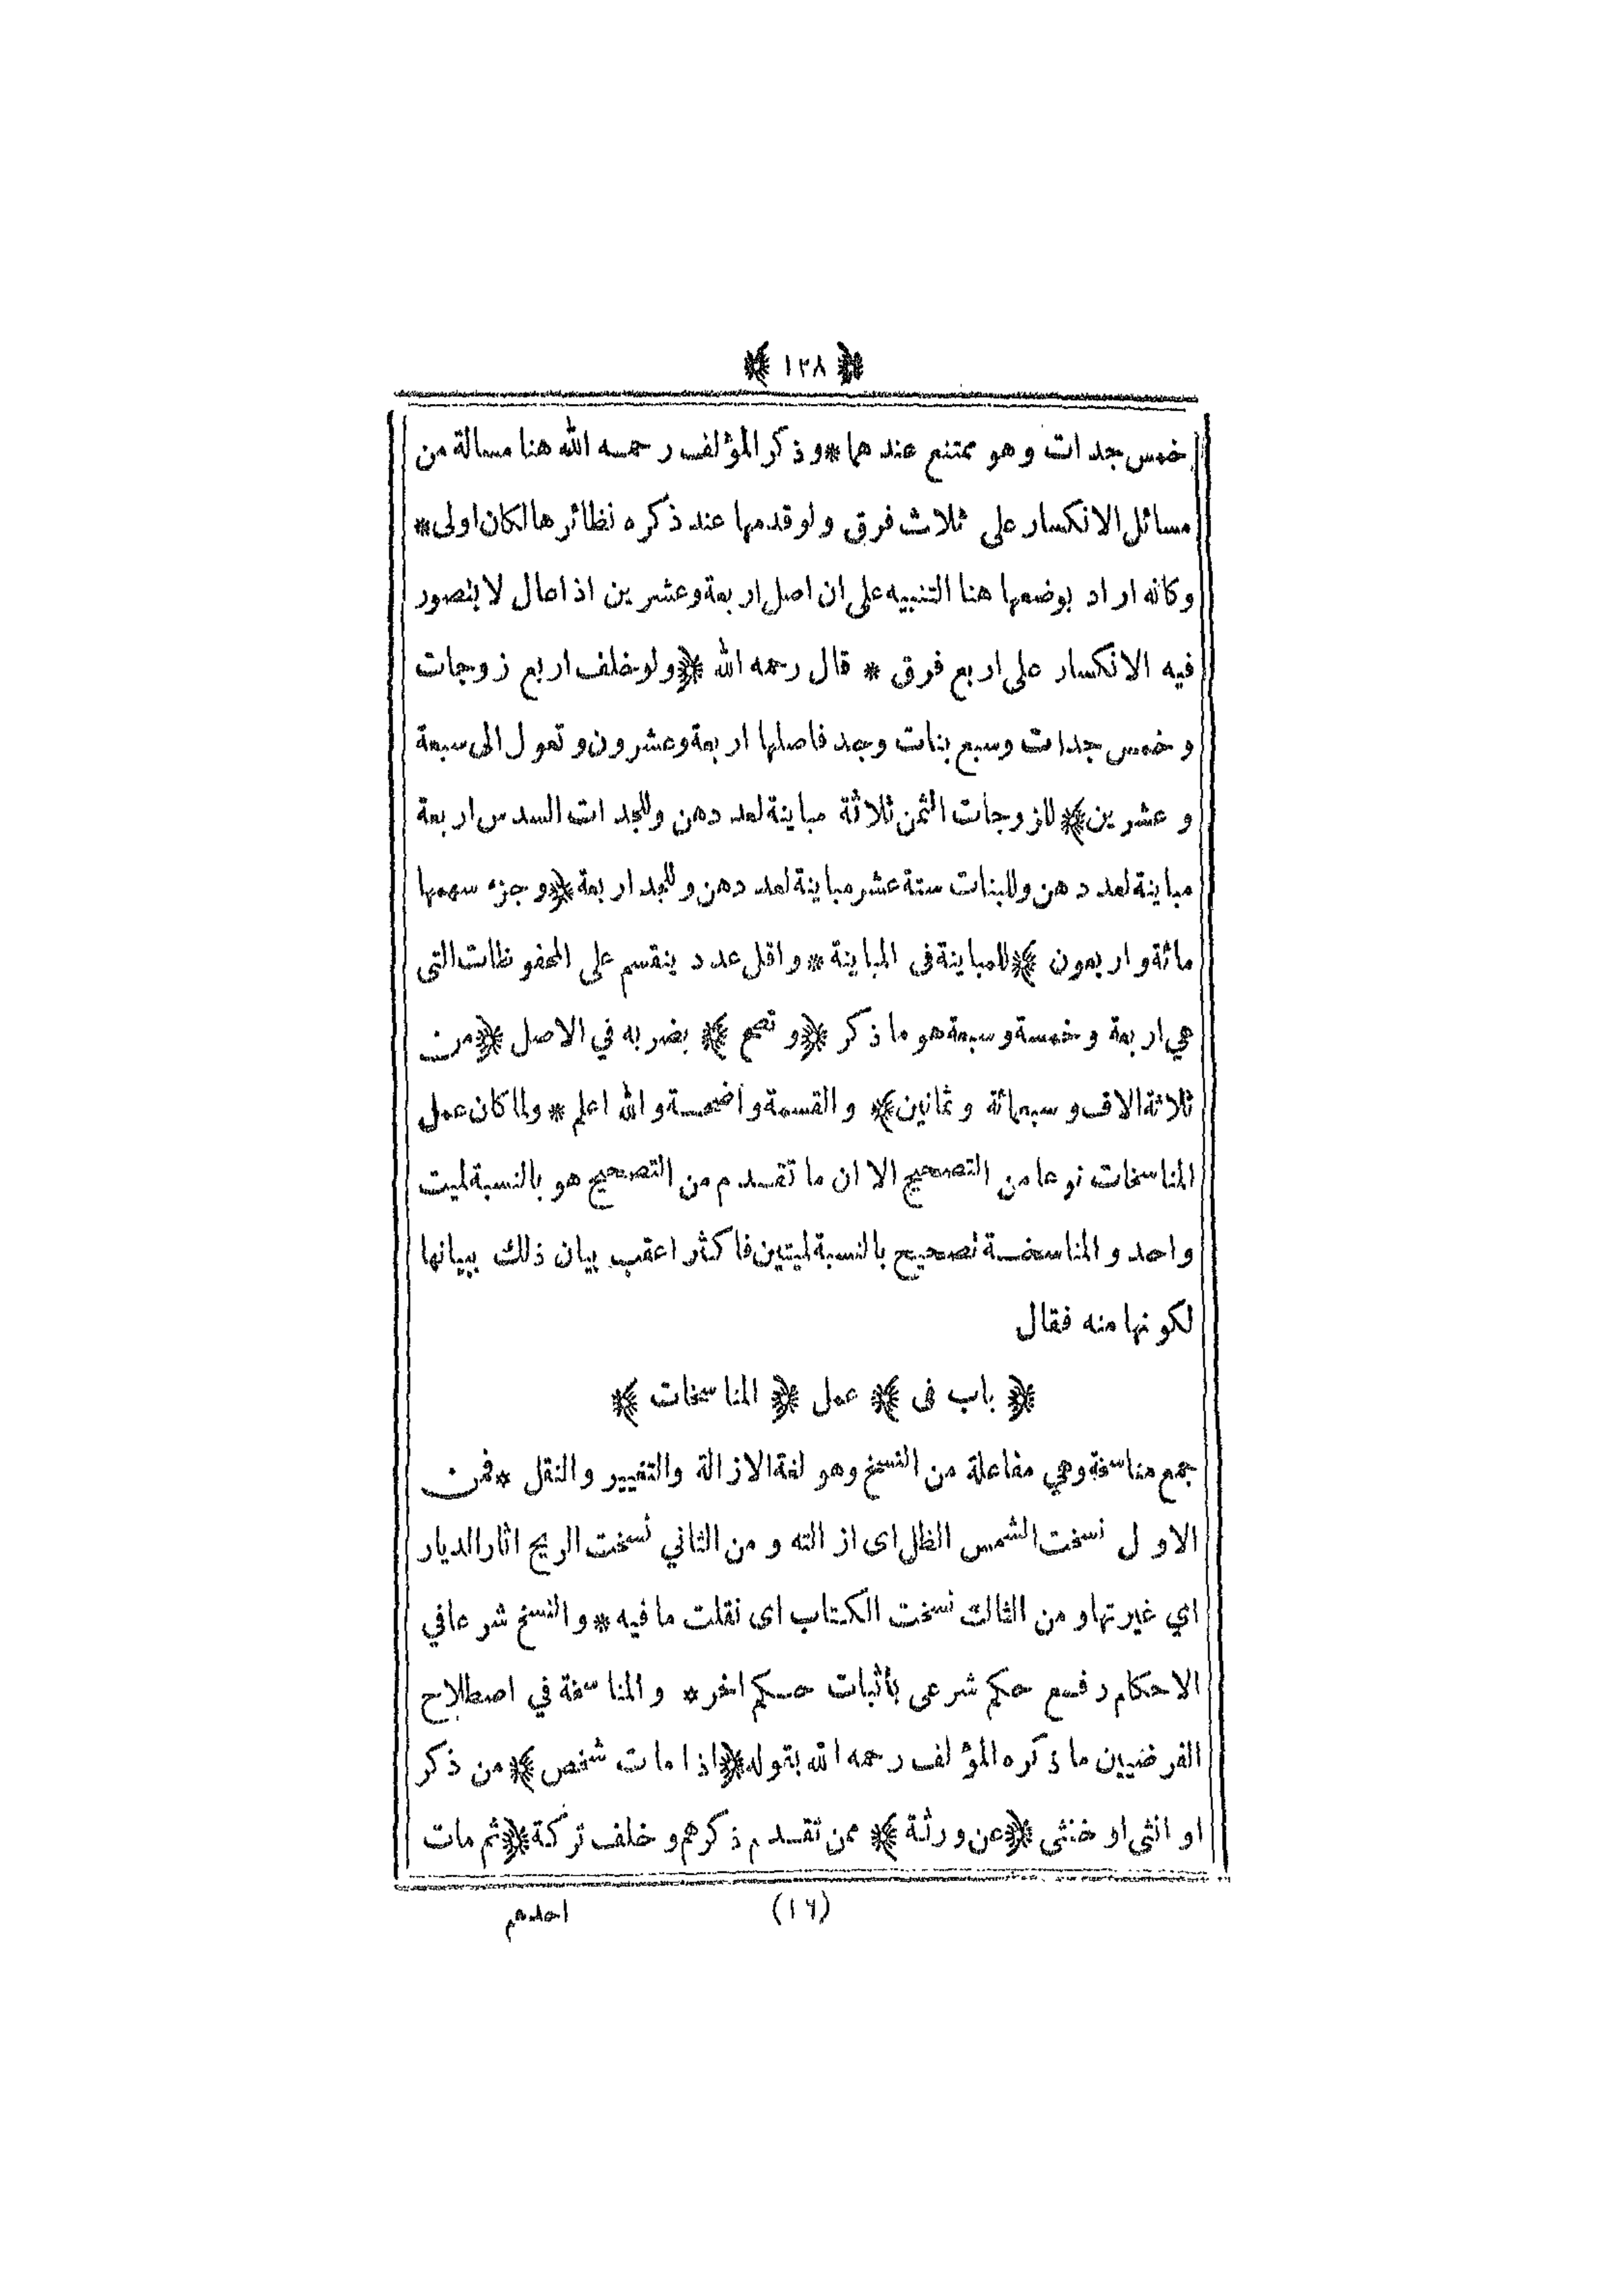 ﴿ ١٢٨ ﴾
خمس جدات وهو ممتنع عندهما * وذكر المؤلف رحمه الله هنا مسالة من
مسائل الانكسار على ثلاث فرق ولو قدمها عند ذكره نظائرها لكان اولى *
وكانه اراد بوضعها هنا التنبيه على ان اصل اربعة وعشرين اذا عال لا يتصور
فيه الانكسار على اربع فرق * قال رحمه الله ﴿ ولو خلف اربع زوجات
وخمس جدات وسبع بنات وجد فاصلها اربعة وعشرون وتعول الى سبعة
وعشرين ﴾ للزوجات الثمن ثلاثة مباينة لعددهن وللجدات السدس اربعة
مباينة لعددهن وللبنات ستة عشر مباينة لعددهن وللجد اربعة ﴿ وجزء سهمها
مائة واربعون ﴾ للمباينة فى المباينة * واقل عدد ينقسم على المحفوظات التى
هي اربعة وخمسة وسبعة هو ما ذكر ﴿ وتصح ﴾ بضربه في الاصل ﴿ من
ثلاثة الاف وسبعمائة وثمانين ﴾ والقسمة واضحة والله اعلم * ولما كان عمل
المناسخات نوعا من التصحيح الا ان ما تقدم من التصحيح هو بالنسبة لميت
واحد والمناسخة تصحيح بالنسبة لميتين فاكثر اعقب بيان ذلك ببيانها
لكونها منه فقال
﴿ باب فى ﴾ عمل ﴿ المناسخات ﴾
جمع مناسخة وهي مفاعلة من النسخ وهو لغة الازالة والتغيير والنقل * فمن
الاول نسخت الشمس الظل اى ازالته ومن الثاني نسخت الريح اثار الديار
اي غيرتها ومن الثالث نسخت الكتاب اى نقلت ما فيه * والنسخ شرعا في
الاحكام رفع حكم شرعى بأثبات حكم اخر * والمناسخة في اصطلاح
الفرضيين ما ذكره المؤلف رحمه الله بقوله ﴿ اذا مات شخص ﴾ من ذكر
او انثى او خنثى ﴿ عن ورثة ﴾ ممن تقدم ذكرهم وخلف تركة ﴿ ثم مات
(١٦)
احدهم